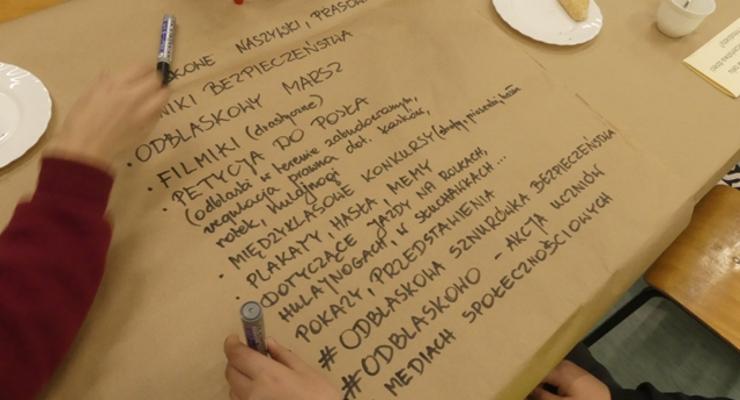 KOWE NASZYWKI, PRASOW
NIKI BEZPIECZEŃSTWA
• ODBLASKOWY MARSZ
• FILMIKI (drastyczne)
• PETYCJA DO POSŁA
(odblaski w terenie zabudowanym,
regulacja prawna dot. kasków,
rolek, hulajnogi
• MIĘDZYKLASOWE KONKURSY (
PLAKATY, HASŁA, MEMY
• DOTYCZĄCE JAZDY NA ROLKACH,
HULAJNOGACH, W SŁUCHAWKACH ...
POKAZY, PRZEDSTAWIENIA
# ODBLASKOWA SZNURÓWKA BEZPIECZEŃSTWA
# ODBLASKOWO - AKCJA UCZNIÓW
MEDIACH SPOŁECZNOŚCIOWYCH